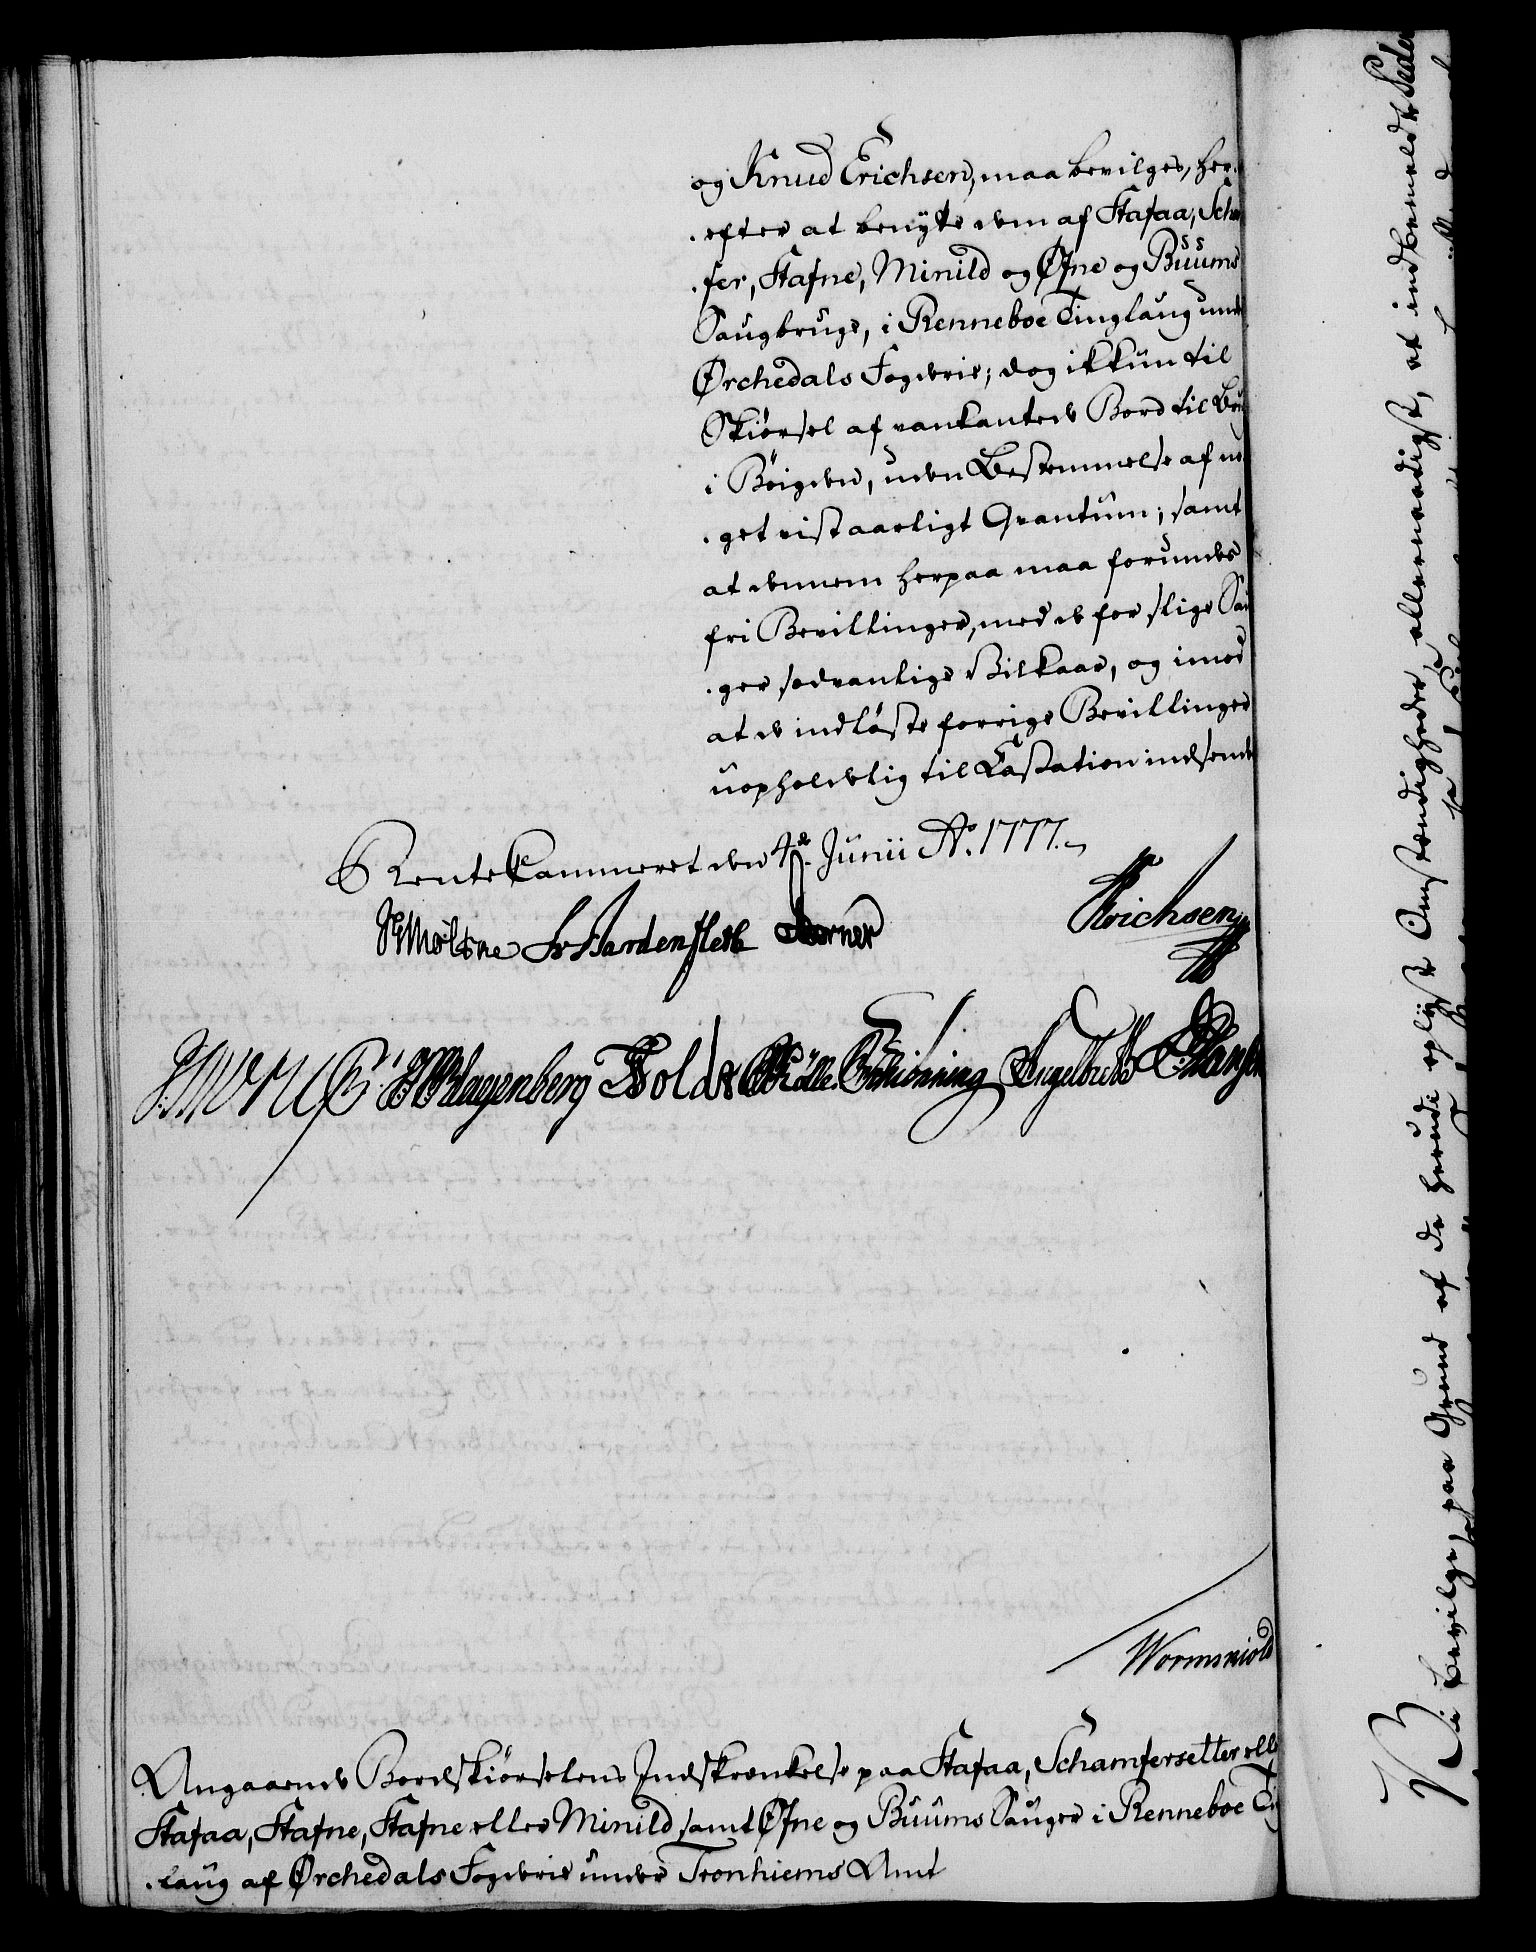 og Knud Erichsen, maa bevilges, her-
-efter at benytte dem af Stafaa, Scham
-fer, Stafne, Minild og Øfne og Buums
Saugbruge, i Renneboe Tinglaug under
Ørchedals Fogderie; dog ikkun til
Skiørsel af vankantede Bord til Brug
i Bøigden, uden Bestemmelse af no-
-get vist aarligt Qvantum; samt
at dennem herpaa maa forundes
fri Bevillinger, med de for slige Sau-
-ger sædvanlige Vilkaar, og imod
at de indløste forrige Bevillinger
uopholdelig til Cassation indsendes
RenteCammeret den 4de Junii Ao. 1777.
Moltke Hardenfleth Berner Erichsen
Klagenberg Holde Schiønning Engelbreth Hansen
Wormskiold
Angaaende Bordskiørselens Indskrænkelse paa Stafaa, Schamfersetter eller
Stafaa, Stafne, Stafne eller Minild samt Øfne og Buums Sauger i Renneboe Ting-
-laug af Ørchedals Fogderie under Tronhiems Amt
Vi bevilge, paa Grund af de herudi oplyste Omstændigheder, allernaadigst, at indbemeldte Peder